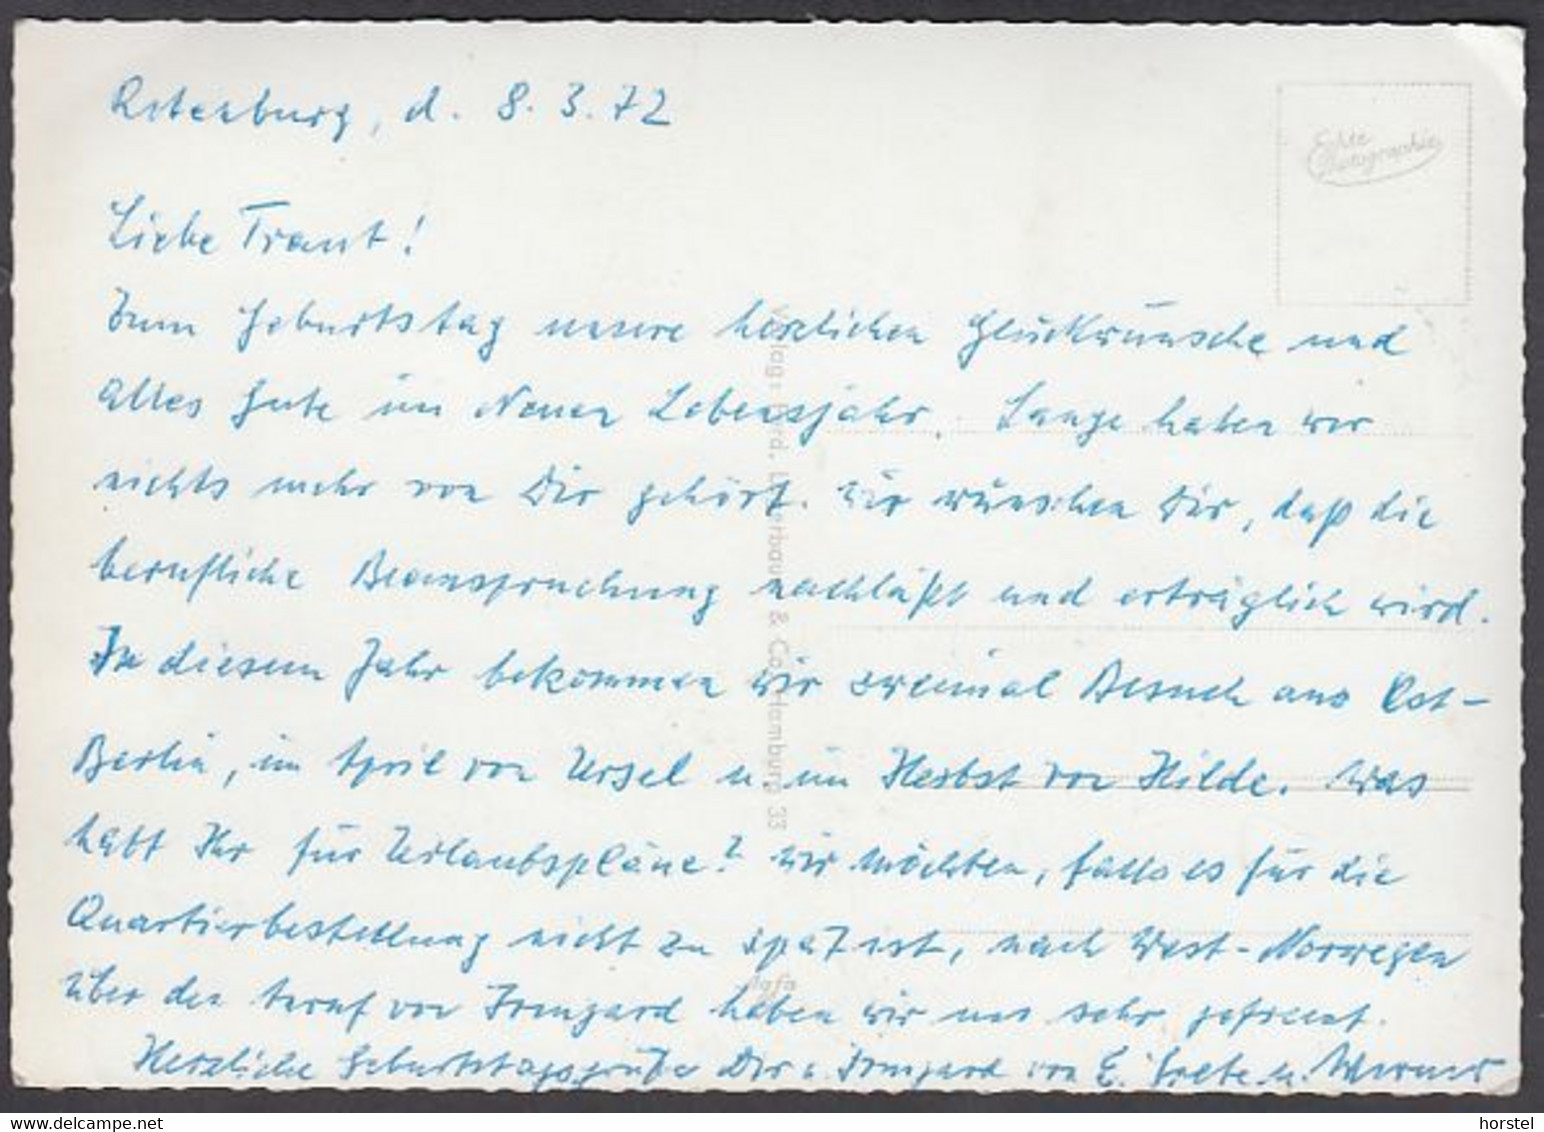 Rotenburg, d. 8.3.72
Echte Photographie
Liebe Traut!
Zum Geburtstag unsere herzlichen Glückwünsche und
alles Gute im Neuen Lebensjahr. Lange haben wir
nichts mehr von Dir gehört. Wir wünschen Dir, daß die
berufliche Beanspruchung nachläßt und erträglich wird.
In diesem Jahr bekommen wir zweimal Besuch aus Ost-
Berlin, im April von Ursel u. im Herbst von Hilde. Was
habt Ihr für Urlaubspläne? Wir möchten, falls es für die
Quartierbestellung nicht zu spät ist, nach West-Norwegen
über den Anruf von Irmgard haben wir uns sehr gefreut.
Herzliche Geburtstagsgrüße Dir u. Irmgard von E. Grete u. Werner
Verlag: Ferd. & Co. Hamburg 33
Agfa
horstel
© www.delcampe.net